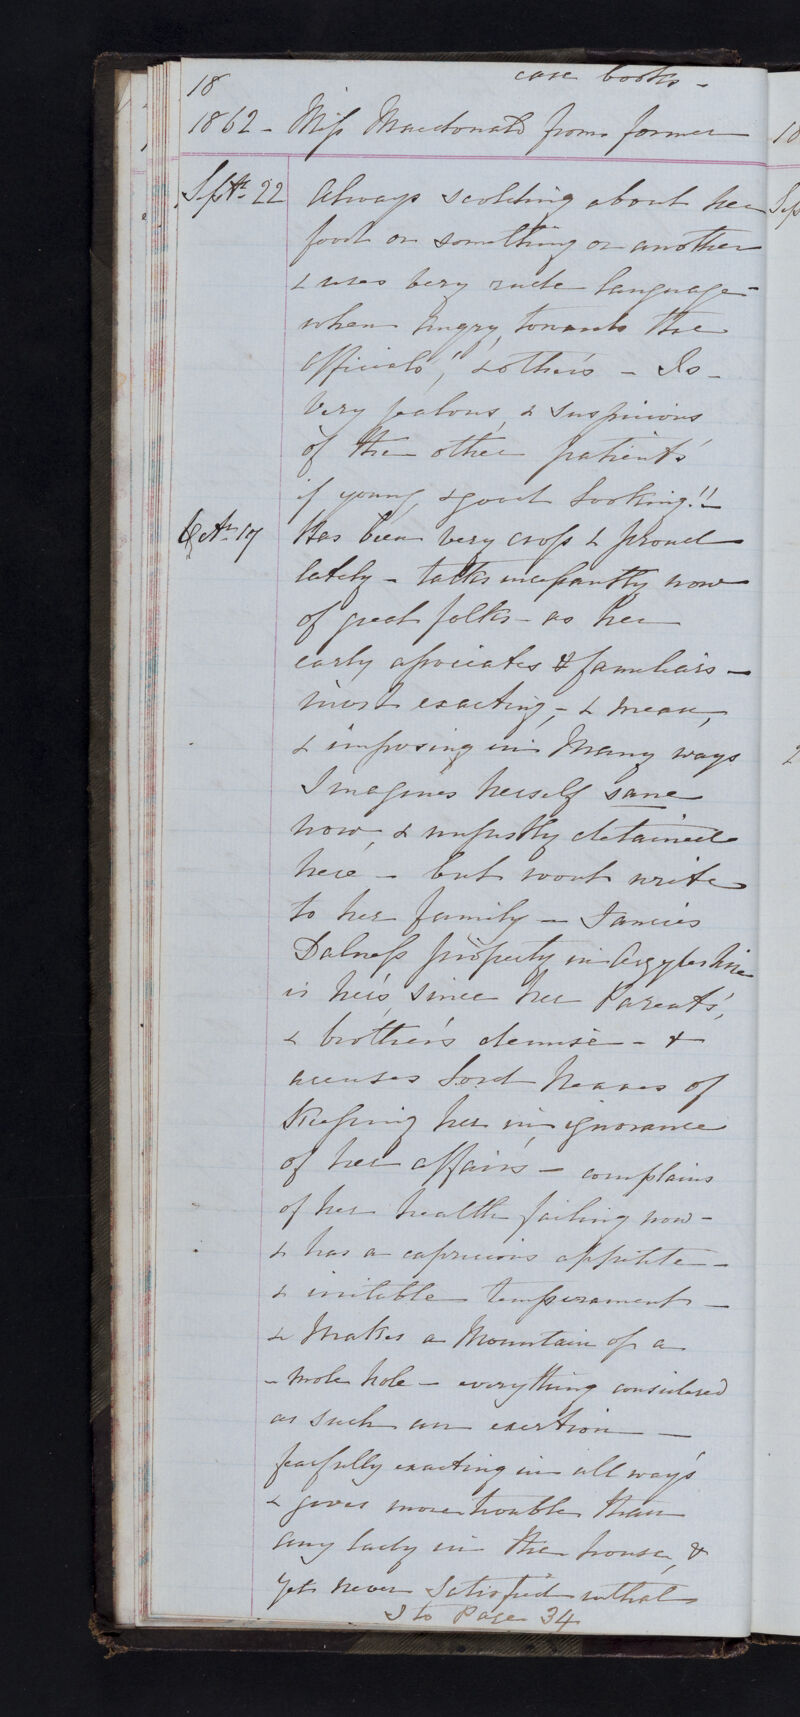 18
case books -
1862 - Miss Macdonald from former
Septr. 22 Always scolding about her
food or something or another
& uses very rude language -
when angry, towards the
officials, & others - Is -
very jealous, & suspicious
of the other patients
if young, & good looking!! -
Octr. 17 Has been very cross & proud
lately - talks incessantly now
of great folks - as her
early associates & familiars -
most exacting, - & mean,
& imposing in many ways
Imagines herself sane
now, & unjustly detained
here - but wont write
to her family - Fancies
Dalness property in Argyleshire
is hers since her Parents,
& brothers demise - &
accuses Lord Neaves of
keeping her in ignorance
of her affairs - complains
of her health failing now -
& has a capricious appetite -
& irritable temperament -
& makes a mountain of a
- mole hole - everything considered
as such an exertion -
fearfully exacting in all ways
& gives more trouble than
any lady in the house, &
yet never satisfied withal
to Page 34
18
Sep
2